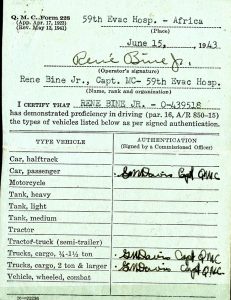 Q. M. C. Form 228
(App. Apr. 17, 1923)
(Rev. May 12, 1941)
59th Evac Hosp. - Africa
(Place)
June 15, 1943
Rene Bine Jr.
(Operator's signature)
Rene Bine Jr., Capt. MC- 59th Evac Hosp.
(Name, rank and organization)
I CERTIFY THAT RENE BINE JR. - O-439518
has demonstrated proficiency in driving (par. 16, A/R 850-15)
the types of vehicles listed below as per signed authentication.
TYPE VEHICLE
AUTHENTICATION
(Signed by a Commissioned Officer)
Car, halftrack
Car, passenger GMDavis Capt QMC
Motorcycle
Tank, heavy
Tank, light
Tank, medium
Tractor
Tractor-truck (semi-trailer)
Trucks, cargo, ¼-1½ ton GMDavis Capt QMC
Trucks, cargo, 2 ton & larger GMDavis Capt QMC
Vehicle, wheeled, combat